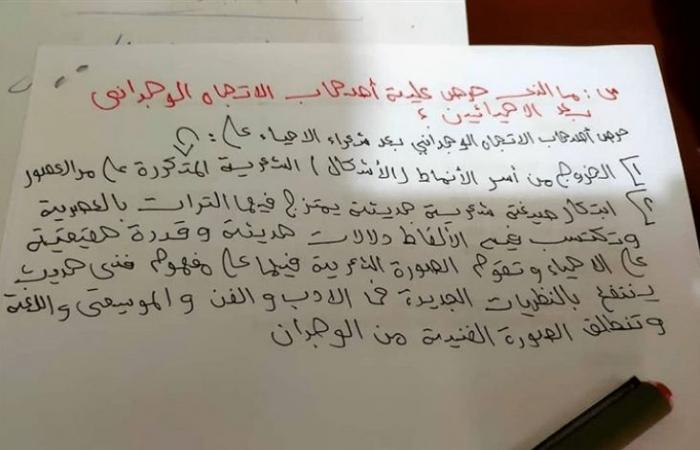 س: ما الذى حرص عليه أصحاب الاتجاه الوجدانى
بعد الاحيائين ؟
حرص أصحاب الاتجاه الوجداني بعد شعراء الاحياء على :
١] الخروج من أسر الأنماط (الأشكال) الشعرية المتكررة على مر العصور
٢] ابتكار صيغة شعرية حديثة يمتزج فيها التراث بالعصرية
وتكتسب فيه الألفاظ دلالات حديثة وقدرة حقيقية
على الاحياء وتقوم الصورة الشعرية فيها على مفهوم فنى حديث
ينتفع بالنظريات الجديدة فى الادب والفن والموسيقى واللغة
وتنطلق الصورة الفنية من الوجدان